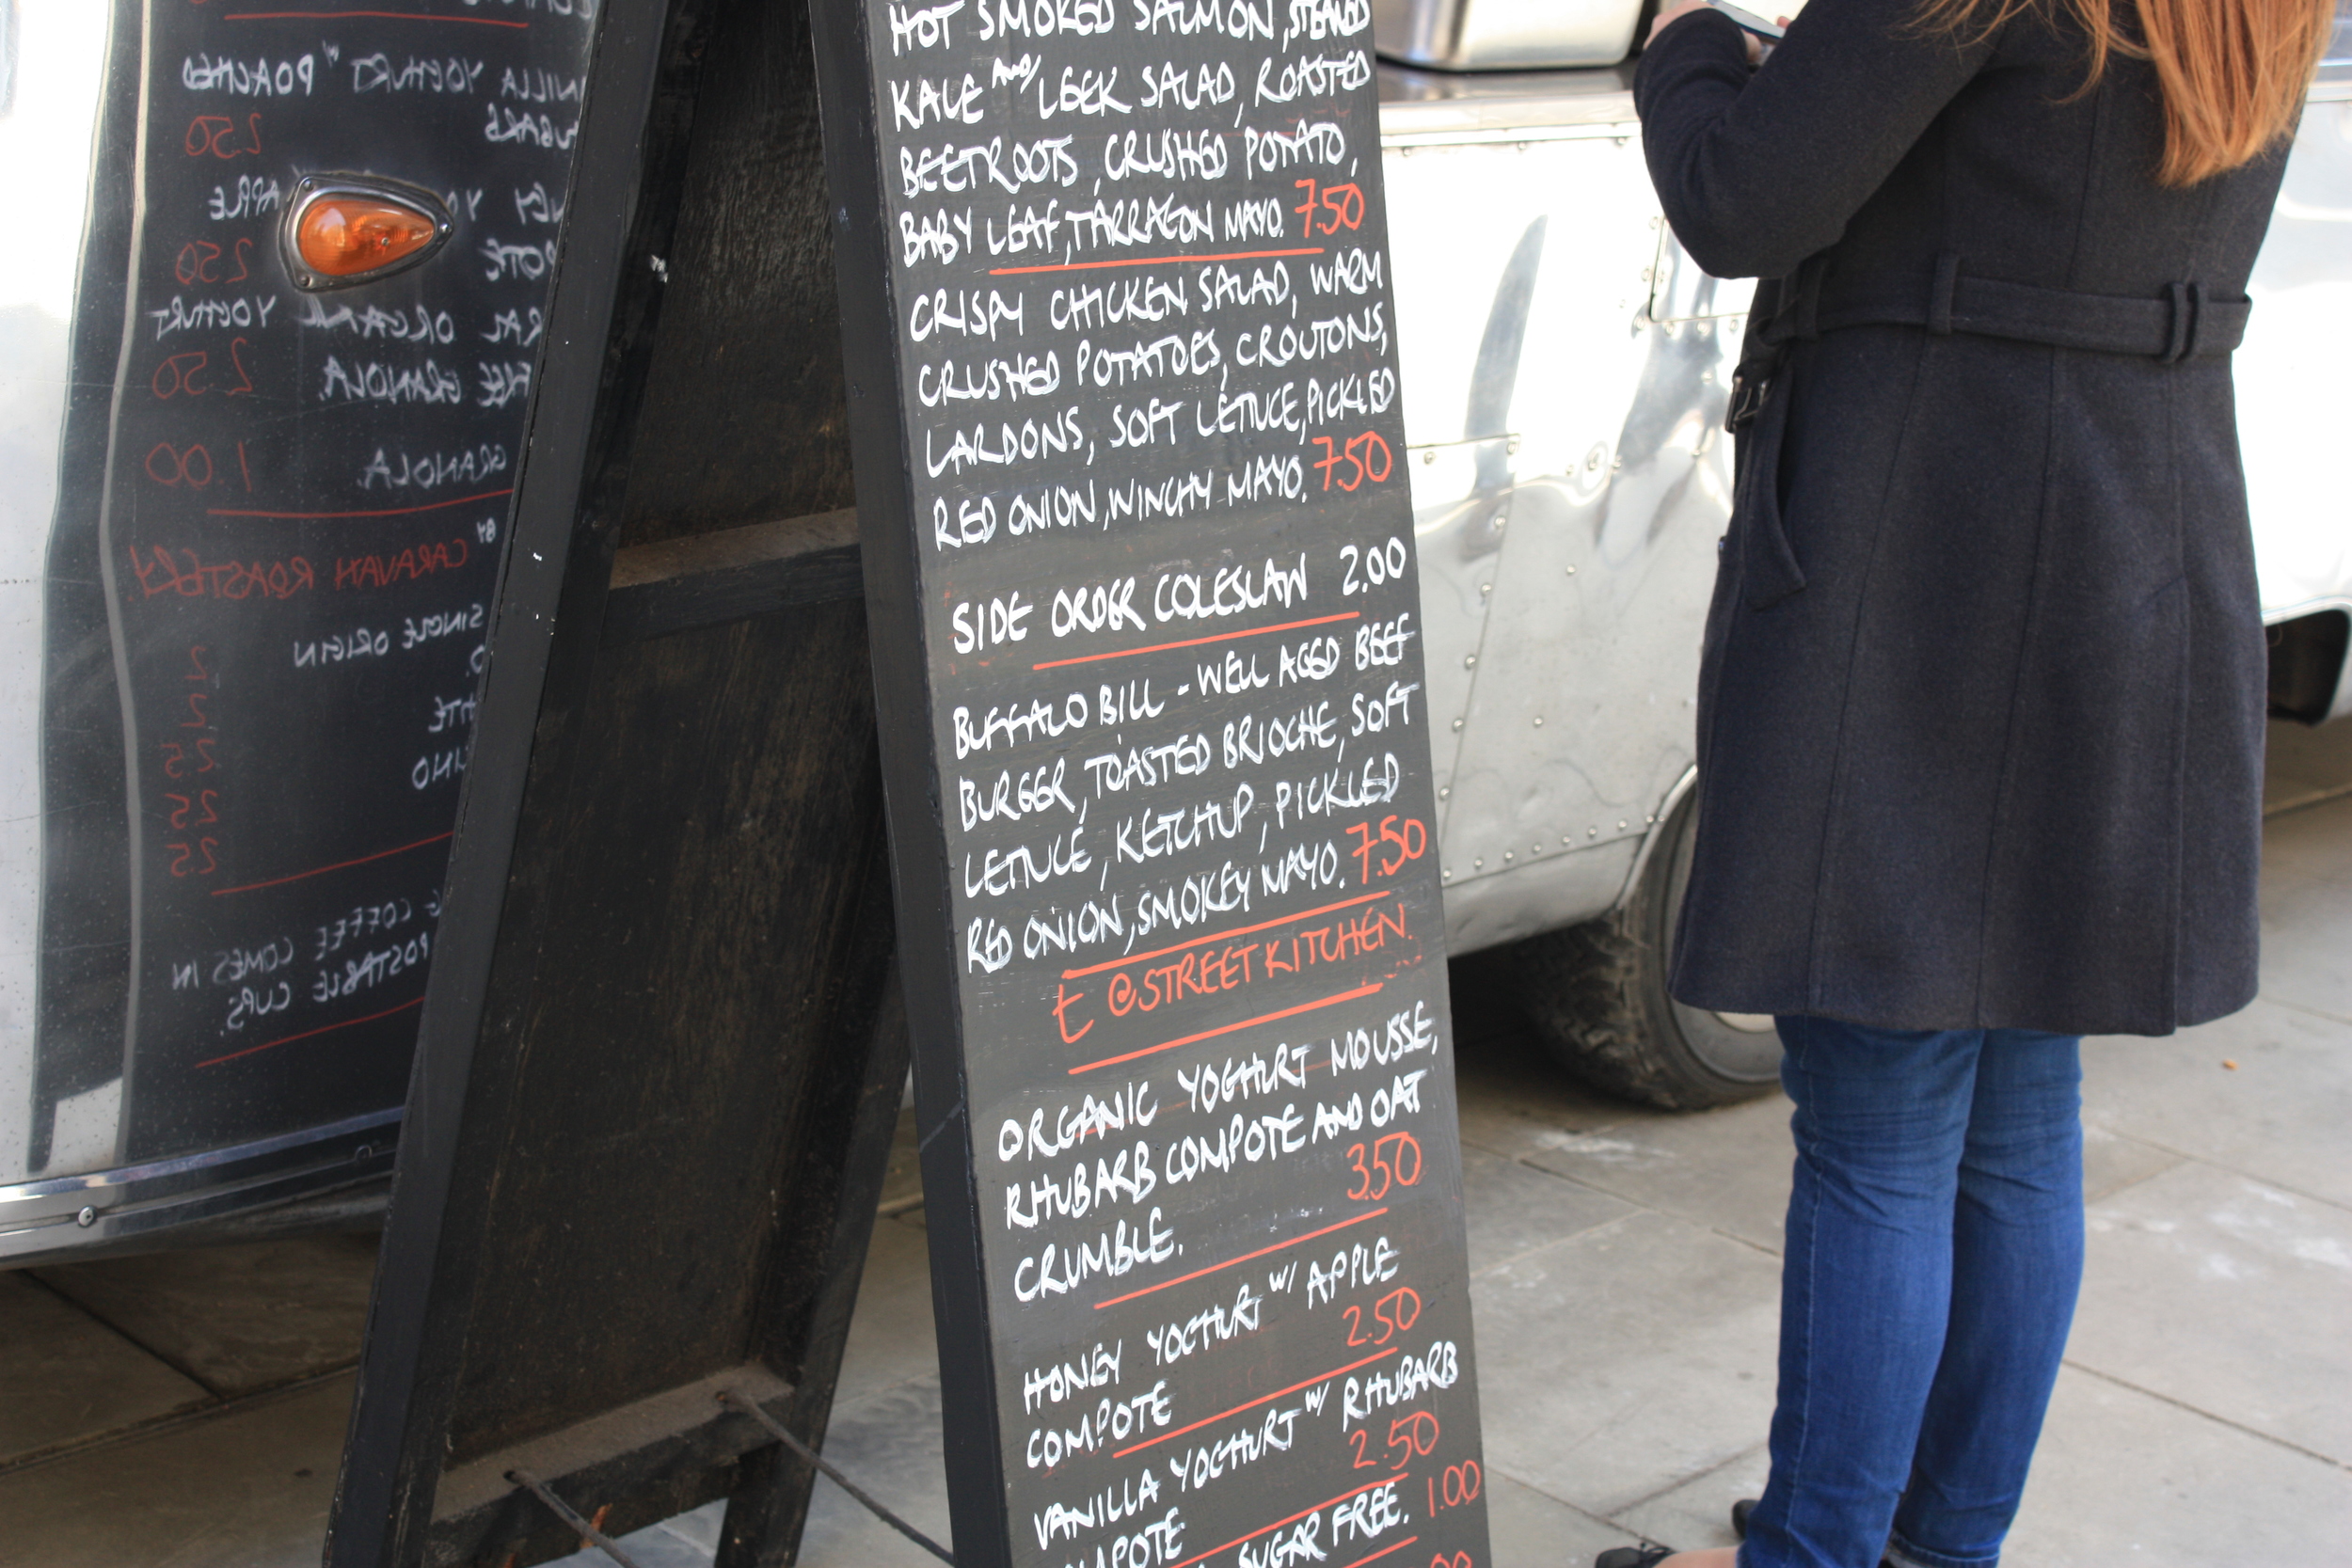 HOT SMOKED SALMON, STEAMED
KALE AND LEEK SALAD, ROASTED
BEETROOTS, CRUSHED POTATO,
BABY LEAF, TARRAGON MAYO. 7.50
CRISPY CHICKEN SALAD, WARM
CRUSHED POTATOES, CROUTONS,
LARDONS, SOFT LETTUCE, PICKLED
RED ONION, WINCHY MAYO. 7.50
SIDE ORDER COLESLAW 2.00
BUFFALO BILL - WELL AGED BEEF
BURGER, TOASTED BRIOCHE, SOFT
LETTUCE, KETCHUP, PICKLED
RED ONION, SMOKEY MAYO. 7.50
t @STREETKITCHEN.
ORGANIC YOGHURT MOUSSE,
RHUBARB COMPOTE AND OAT
CRUMBLE. 3.50
HONEY YOGHURT W/ APPLE
COMPOTE 2.50
VANILLA YOGHURT W/ RHUBARB
COMPOTE 2.50
SUGAR FREE. 1.00
YOGHURT W/ POACHED
2.50
APPLE
2.50
ORGANIC YOGHURT
GRANOLA. 2.50
GRANOLA. 1.00
BY CARAVAN ROASTERY.
SINGLE ORIGIN
2
2
2.5
2.5
2.5
COFFEE COMES IN
CUPS.